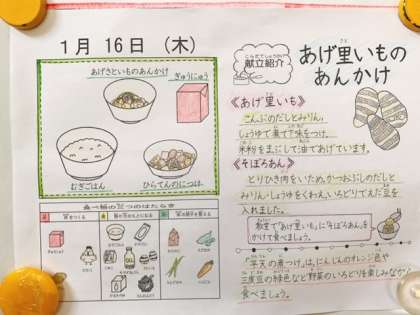 1月 16日 (木)
あげさといものあんかけ
ぎゅうにゅう
むぎごはん
ひらてんのにつけ
献立紹介
あげ里いもの
あんかけ
《あげ里いも》
こんぶのだしとみりん、
しょうゆで煮て下味をつけ、
米粉をまぶして油であげています。
《そぼろあん》
とりひき肉をいため、かつおぶしのだしと
みりん・しょうゆをくわえ、いろどりでえだ豆を
入れました。
教室で「あげ里いも」に「そぼろあん」を
かけて食べましょう。
「平天の煮つけ」は、にんじんのオレンジ色や
三度豆の緑色など野菜のいろどりを楽しみながら
食べましょう。